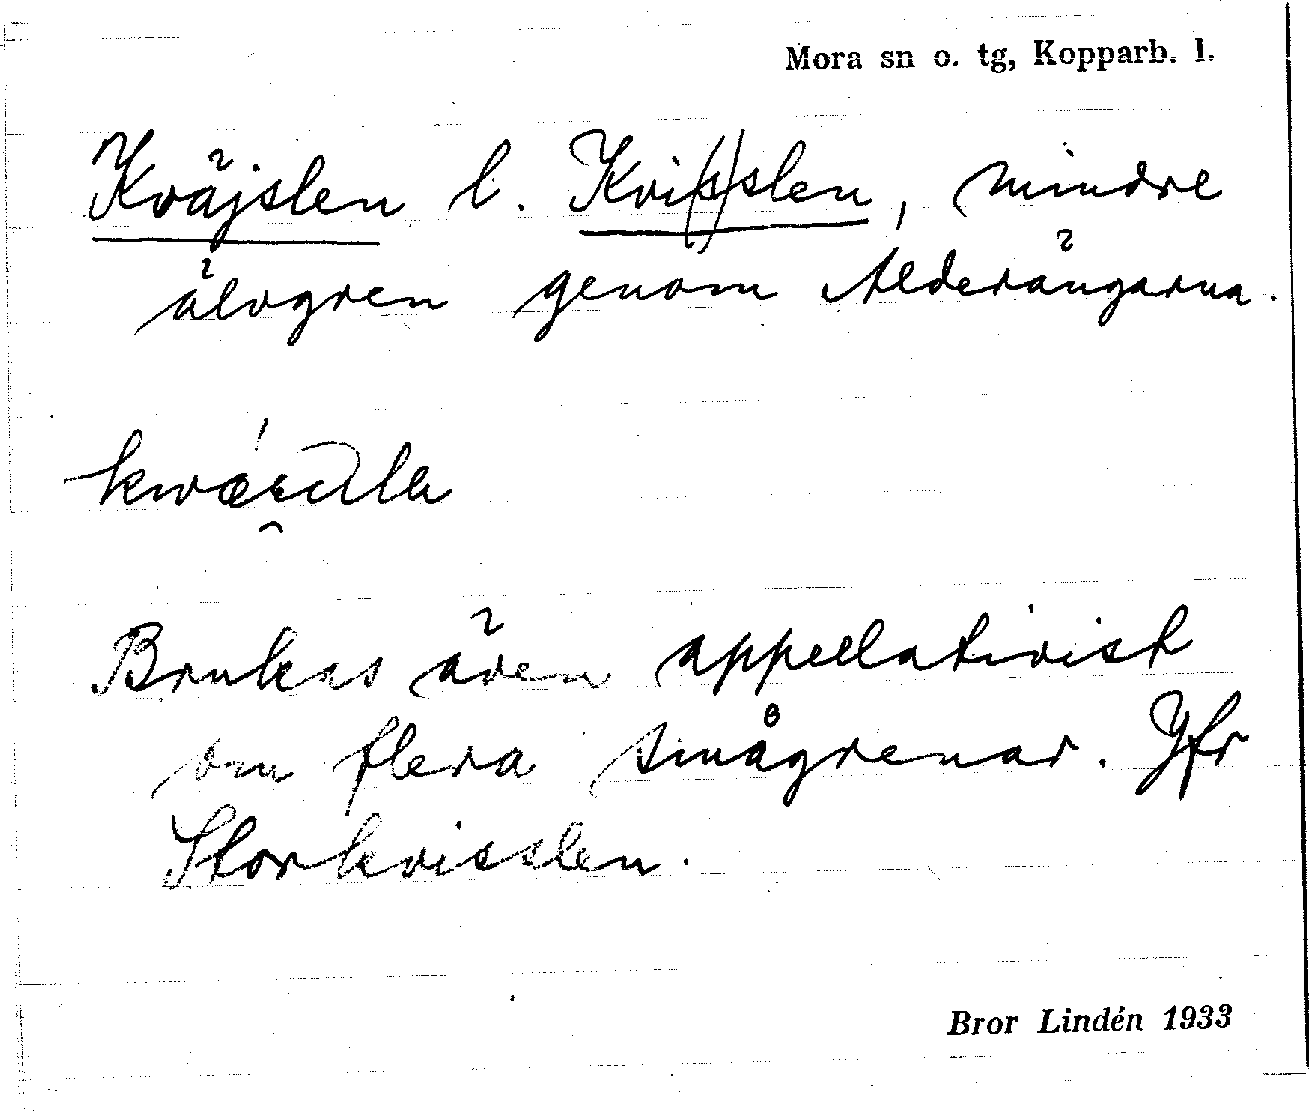 Mora sn o. tg, Kopparb. l.
Kväjslen l. Kvisslen, mindre
älvgren genom Alderängarna.
Brukas även appellativist
om flera smågrenar. Jfr
Storkvisslen.
Bror Lindén 1933